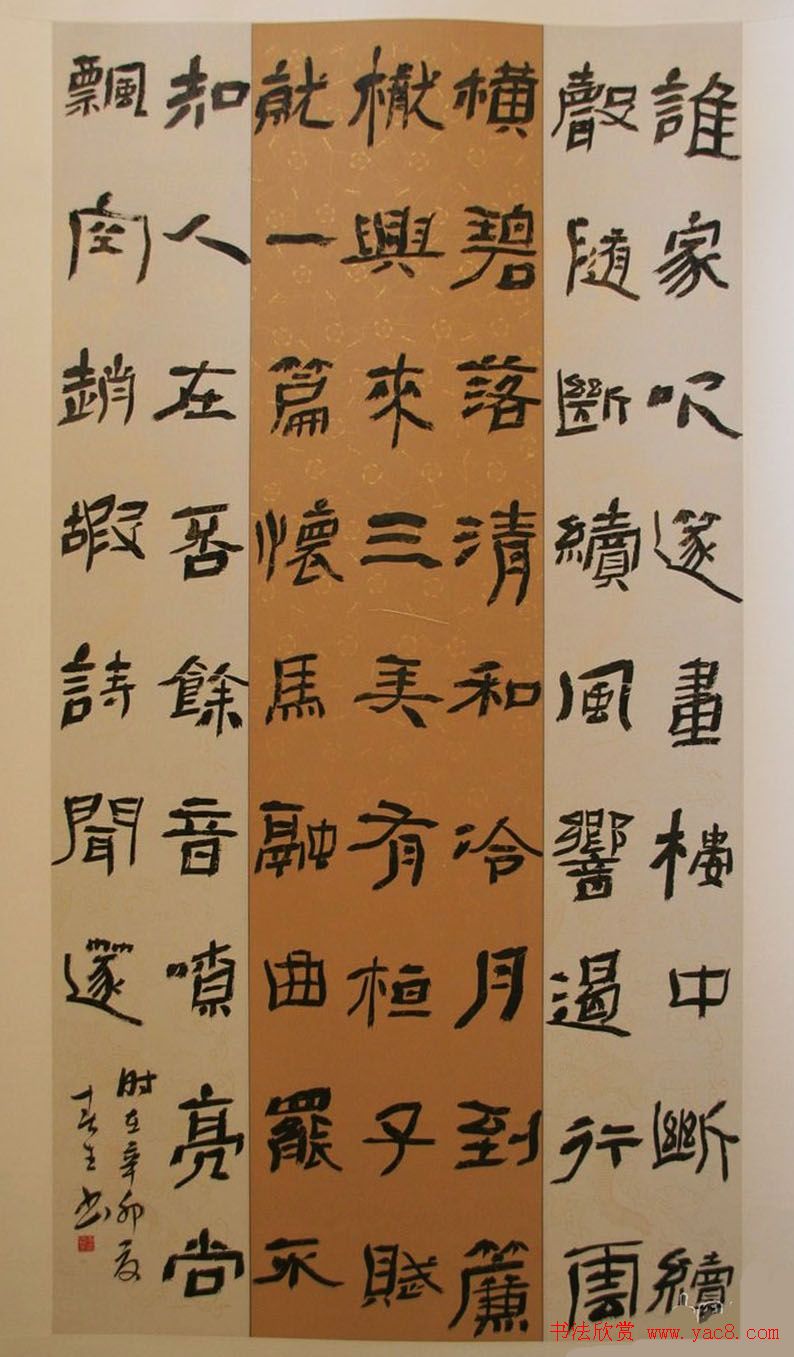 誰家吹篴畫樓中斷續
聲隨斷續風響遏行雲
橫碧落清和冷月到簾
櫳興來三美有桓子賦
就一篇懷馬融曲罷不
知人在否餘音嘹亮尚
飄空趙嘏詩聞篴
时在辛卯夏
春生书
书法欣赏 www.yac8.com